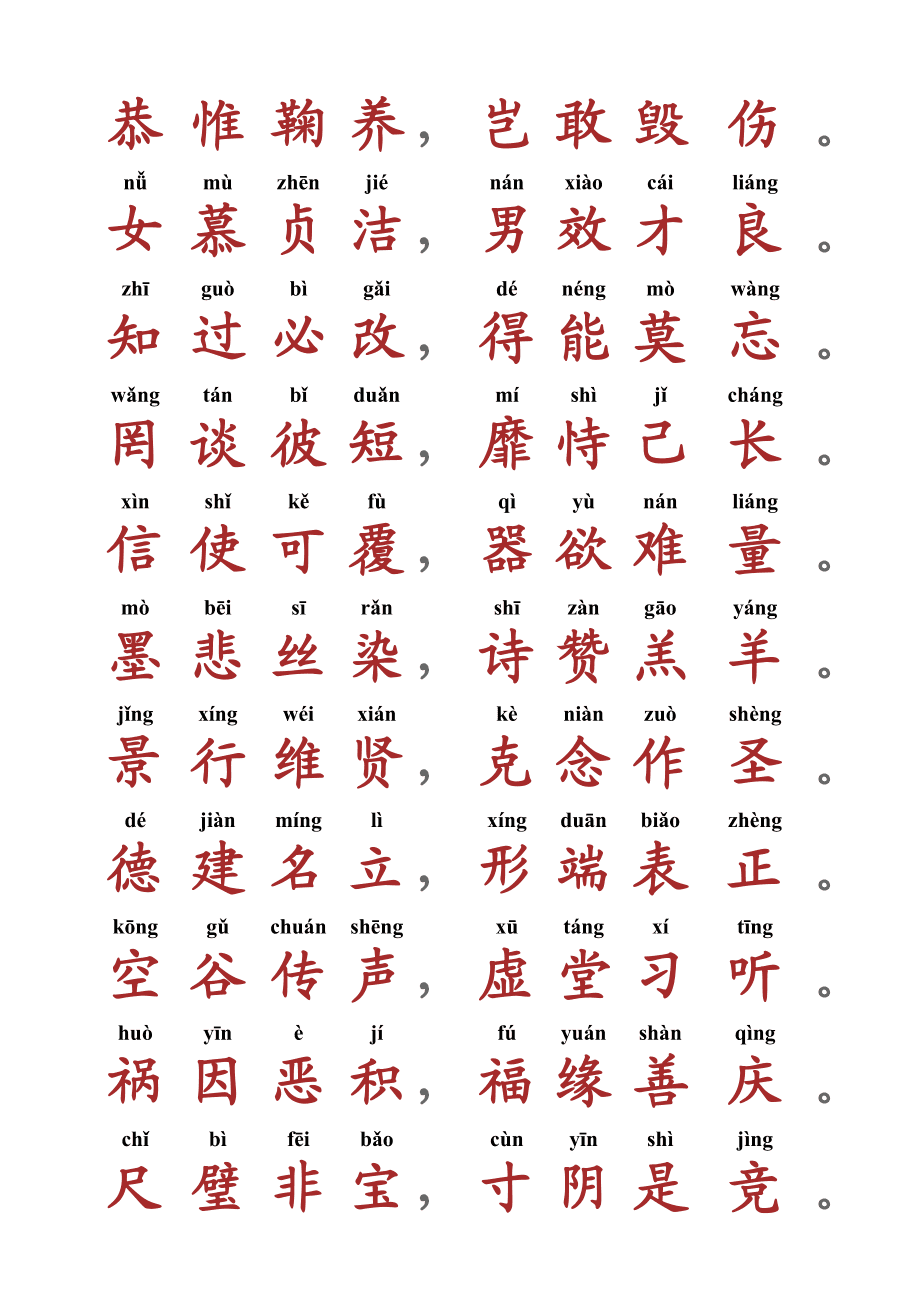 恭惟鞠养，岂敢毁伤。
nǚ mù zhēn jié nán xiào cái liáng
女慕贞洁，男效才良。
zhī guò bì gǎi dé néng mò wàng
知过必改，得能莫忘。
wǎng tán bǐ duǎn mí shì jǐ cháng
罔谈彼短，靡恃己长。
xìn shǐ kě fù qì yù nán liáng
信使可覆，器欲难量。
mò bēi sī rǎn shī zàn gāo yáng
墨悲丝染，诗赞羔羊。
jǐng xíng wéi xián kè niàn zuò shèng
景行维贤，克念作圣。
dé jiàn míng lì xíng duān biǎo zhèng
德建名立，形端表正。
kōng gǔ chuán shēng xū táng xí tīng
空谷传声，虚堂习听。
huò yīn è jí fú yuán shàn qìng
祸因恶积，福缘善庆。
chǐ bì fēi bǎo cùn yīn shì jìng
尺璧非宝，寸阴是竞。